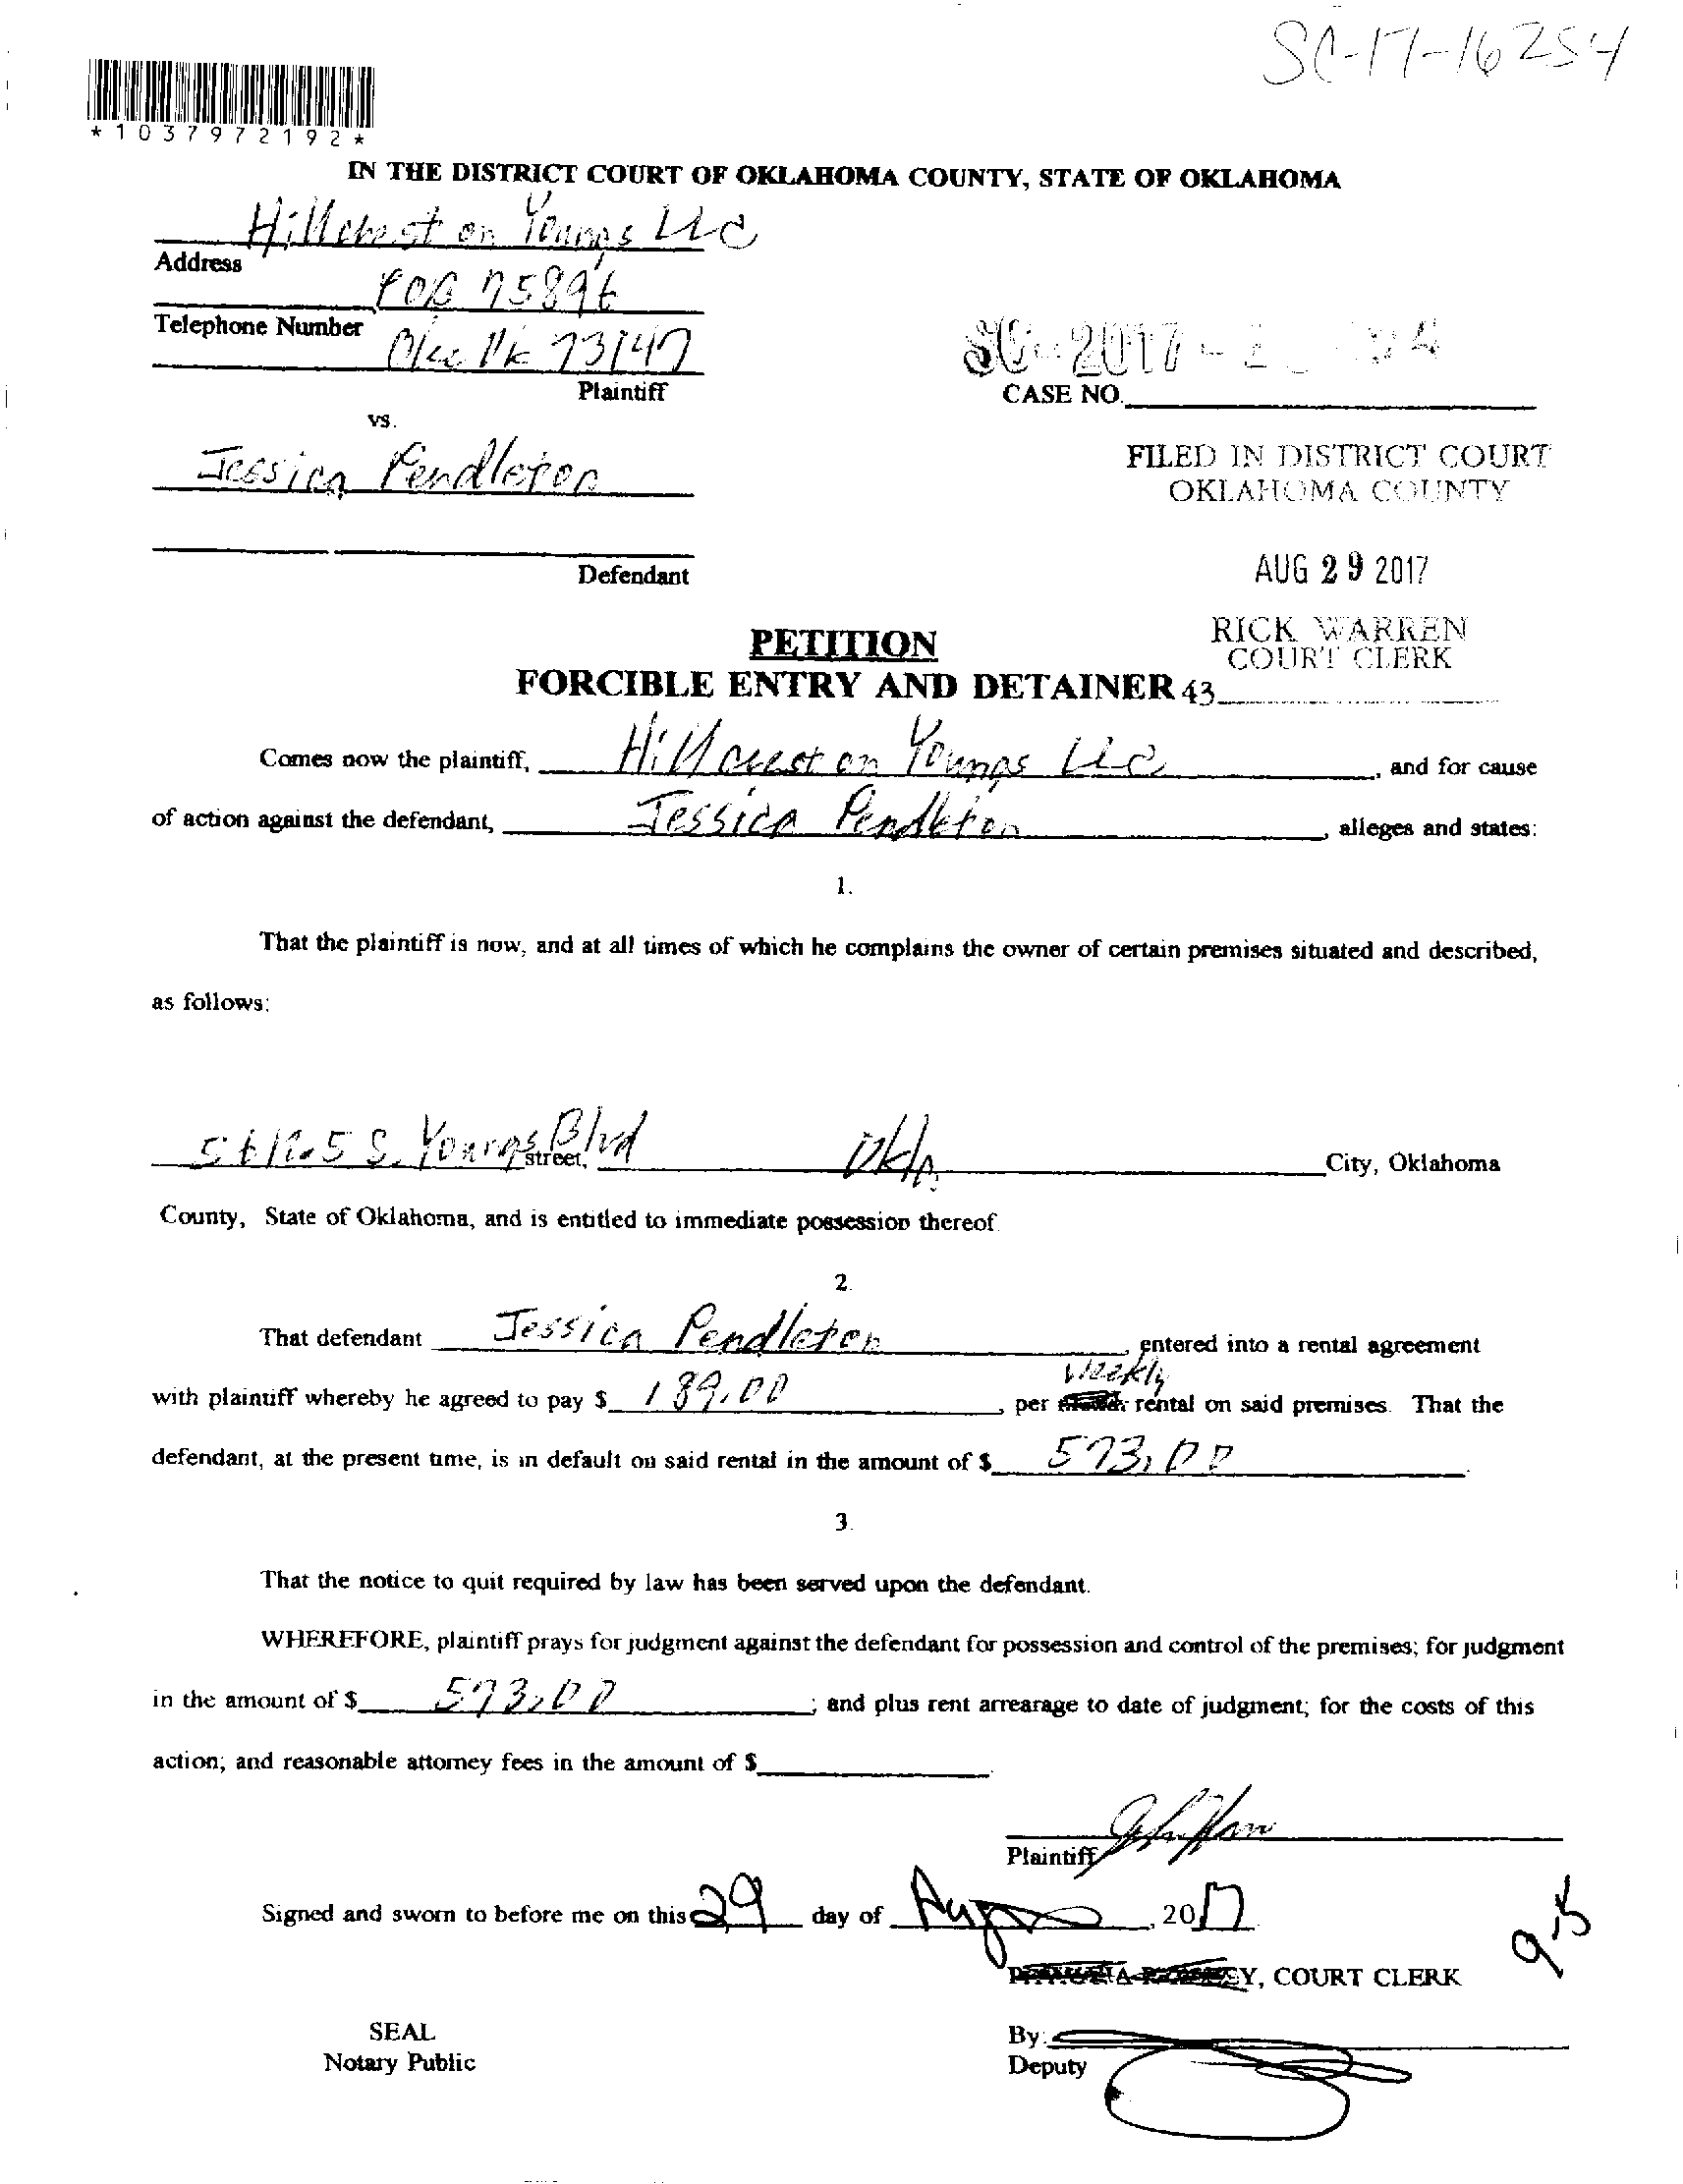 SC-17-16254
*1037972192*
IN THE DISTRICT COURT OF OKLAHOMA COUNTY, STATE OF OKLAHOMA
Hillcrest on Youngs LLC
Address
POB 75896
Telephone Number
Okc Ok 73147
Plaintiff
SC-2017-
CASE NO.
vs.
Jessica Pendleton
FILED IN DISTRICT COURT
OKLAHOMA COUNTY
Defendant
AUG 29 2017
PETITION
RICK WARREN
COURT CLERK
FORCIBLE ENTRY AND DETAINER 43
Comes now the plaintiff, Hillcrest on Youngs LLC, and for cause
of action against the defendant, Jessica Pendleton, alleges and states:
1.
That the plaintiff is now, and at all times of which he complains the owner of certain premises situated and described,
as follows:
S. Youngs Blvd street, Okla. City, Oklahoma
County, State of Oklahoma, and is entitled to immediate possession thereof.
2.
That defendant Jessica Pendleton, entered into a rental agreement
with plaintiff whereby he agreed to pay $ 189.00, per weekly rental on said premises. That the
defendant, at the present time, is in default on said rental in the amount of $ 573.00.
3.
That the notice to quit required by law has been served upon the defendant.
WHEREFORE, plaintiff prays for judgment against the defendant for possession and control of the premises; for judgment
in the amount of $ 573.00; and plus rent arrearage to date of judgment; for the costs of this
action; and reasonable attorney fees in the amount of $
Plaintiff
Signed and sworn to before me on this 29 day of August, 2017
9-5
COURT CLERK
SEAL
Notary Public
By:
Deputy